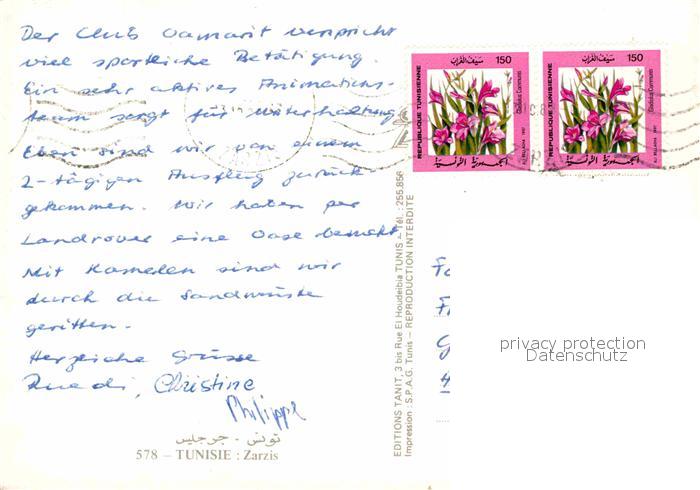 Der Club Oamarit verspricht
viel sportliche Betätigung.
Ein sehr aktives Animations-
team sorgt für Unterhaltung.
Eben sind wir von einem
2-tägigen Ausflug zurück-
gekommen. Wir haben per
Landrover eine Oase besucht.
Mit Kamelen sind wir
durch die Sandwüste
geritten.
Herzliche Grüsse
Ruedi, Christine
Philippe
تونس - جرجيس
578 – TUNISIE : Zarzis
EDITIONS TANIT, 3 bis Rue El Houdeibia TUNIS - Tél. : 255.856
Impression : S.P.A.G. Tunis – REPRODUCTION INTERDITE
سيف الغراب 150
REPUBLIQUE TUNISIENNE
Gladiolus Communis
الجمهورية التونسية
سيف الغراب 150
REPUBLIQUE TUNISIENNE
Gladiolus Communis
الجمهورية التونسية
privacy protection
Datenschutz